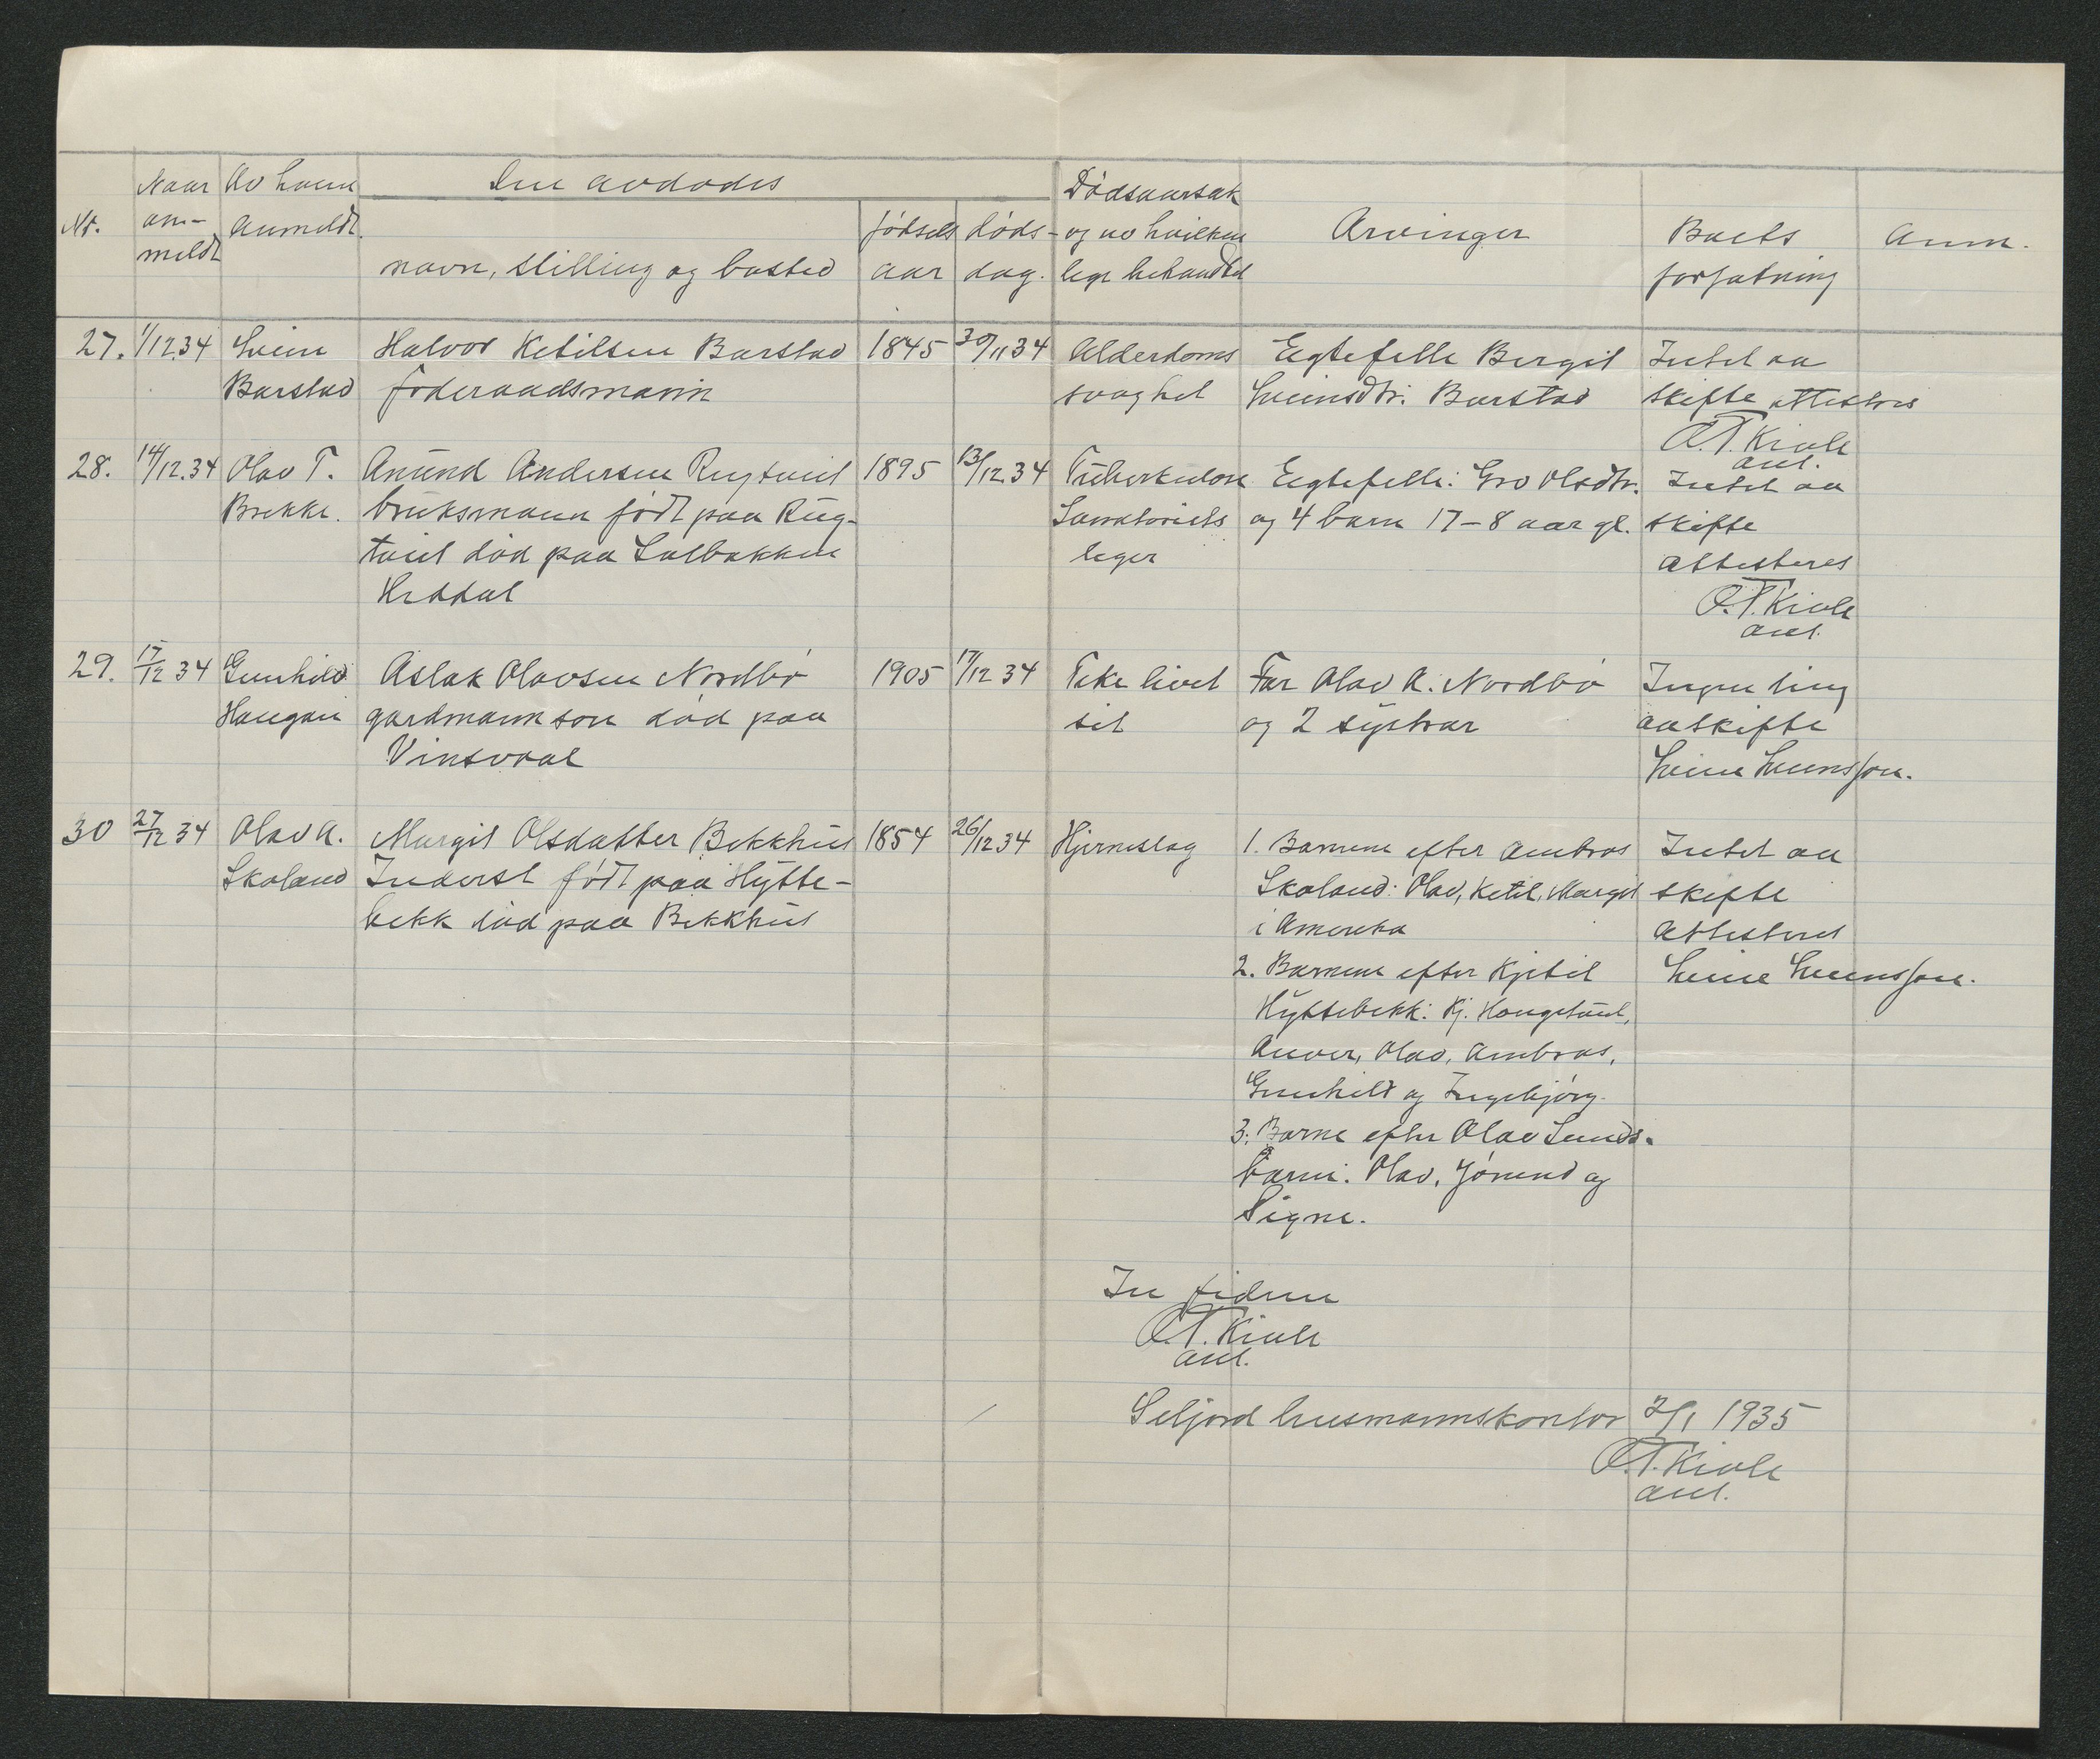 Nr.
Naar an-meldt
Av hvem Anmeldt.
Den avdødes
navn, stilling og bosted
fødsels aar
døds-dag.
Dødsaarsak
og av hvilken
lege behandled
Arvinger
Boets
forfatning
Anm.
27. 1/12.34 Svein Halvor Ketilsen Barstad 1845 30/11 34 Alderdoms Egtefelle Bergit Intet aa
Barstad føderaadsmann svaghet Sveinsdtr. Barstad skifte attesteres
O.T. Kivle
aut.
28. 14/12.34 Olav T. Anund Andersen Rugtveit 1895 13/12.34 Tuberkulose Egtefelle: Gro Olsdtr. Intet aa
Brekke. bruksmann født paa Rug- Sanatoriets og 4 barn 17-8 aar gl. skifte
tveit død paa Solbakken leger attesteres
Heddal O.T. Kivle
aut.
29. 17/12 34 Gunhild Aslak Olavsen Nordbø 1905 17/12 34 Teke livet Far Olav A. Nordbø Ingen ting
Haugan gardmannson død paa sit og 2 systrar aa skifte
Vinsvval Svein Sveinsson.
30 27/12 34 Olav A. Margit Olsdatter Bekkhus 1854 26/12 34 Hjerneslag 1. Barnene efter Ambros Intet aa
Skoland Inderst født paa Hytte- Skoland: Olav, Ketil, Margit skifte
bekk død paa Bekkhus i Amerika Attesteret
2. Barnene efter Kjetil Svein Sveinsson.
Hyttebekk: Kj. Haugetveit,
Anver, Olav, Ambros,
Gunhild og Ingebjørg.
3. Barne efter Olav Sunds-
barm. Olav, Jørund og
Signe.
In fidem
O.T. Kivle
aut.
Seljord lensmannskontor 2/1 1935
O.T. Kivle
aut.